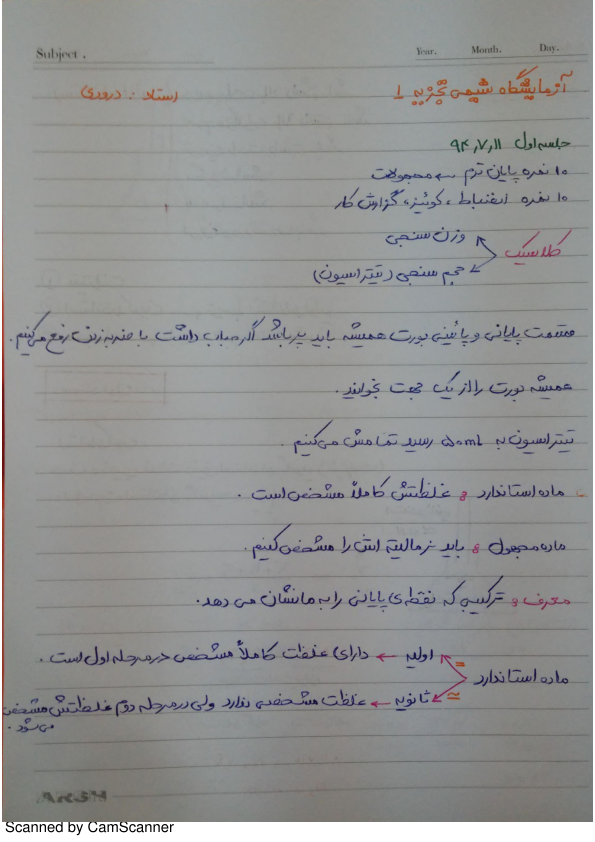 Subject . Year. Month. Day.
آزمایشگاه شیمی تجزیه 1 استاد : درودی
جلسه اول 94,7,11
10 نمره پایان ترم → مجهولات
10 نمره انضباط ، کوئیز، گزارش کار
وزن سنجی
کلاسیک
حجم سنجی (تیتراسیون)
قسمت پایانی و پائینی بورت همیشه باید پر باشد اگر حباب داشت با ضربه زدن رفع می‌کنیم.
همیشه بورت را از یک جهت بخوانید.
تیتراسیون به 50mL رسید تمامش می‌کنیم.
ماده استاندارد : غلظتش کاملاً مشخص است .
ماده مجهول : باید نرمالیته اش را مشخص کنیم.
معرف : ترکیبی که نقطه ی پایانی را به ما نشان می دهد.
اولیه ← دارای غلظت کاملاً مشخص در مرحله اول است .
ماده استاندارد
ثانویه ← غلظت مشخصی ندارد ولی در مرحله دوم غلظتش مشخص
می شود.
Scanned by CamScanner